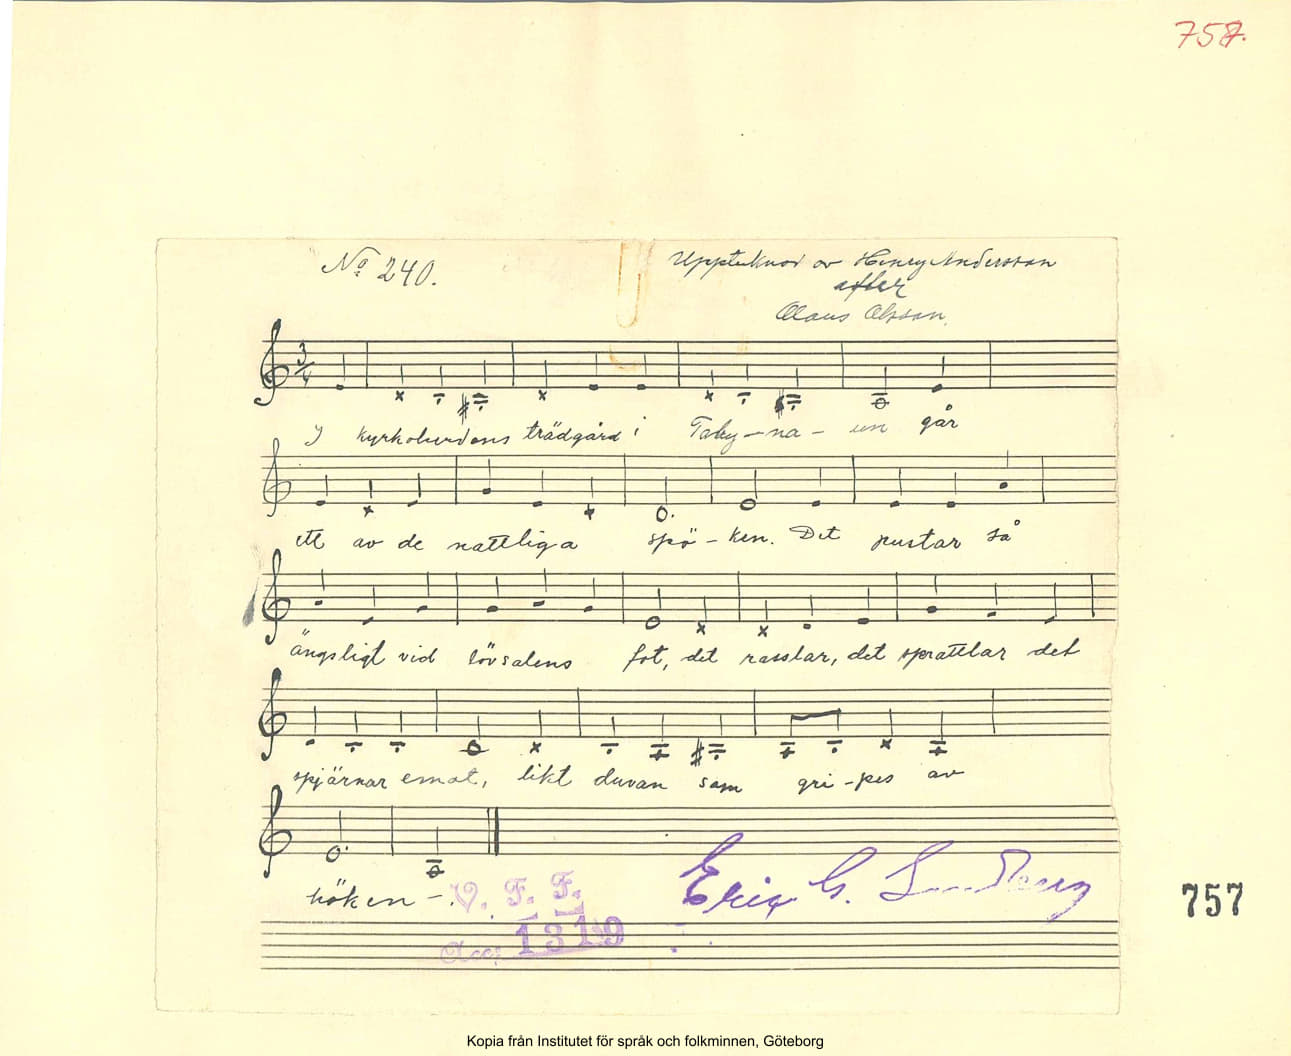 758.
No 240.
Upptecknad av Henry Andersson
after
Claus Olsson.
3/4
I kyrkoherdens trädgård i Taby-na- en går
ett av de nattliga spö-ken. Det pustar så
ängsligt vid lövsalens fot, det rasslar, det sprattlar det
spjärnar emot, likt duvan som gri-pes av
höken -.
V. F. F.
Acc. 1319
Eric G.
757
Kopia från Institutet för språk och folkminnen, Göteborg